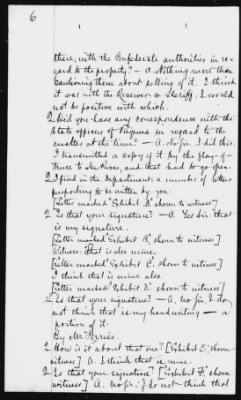 6
there, with the Confederate authorities in re-
gard to the property? — A. Nothing more than
cautioning them about selling of it. I think
it was with the Receiver or Sheriff. I would
not be positive with which.
Q. Did you have any correspondence with the
State officers of Virginia in regard to the
matter at the time? — A. No sir. I did this.
I transmitted a copy of it by the flag-of-
truce to and that had to go open.
Q. I find in the Department a number of letters
purporting to be written by you.
[Letter marked "Exhibit A" shown to witness]
Q. Is that your signature? — A. Yes sir, that
is my signature.
[Letter marked "Exhibit B," shown to witness]
Witness: that is also mine.
[Letter marked "Exhibit C," shown to witness]
I think that is mine also.
[Letter marked "Exhibit D" shown to witness]
Q. Is that your signature? — A. No sir, I do
not think that is my handwriting — a
portion of it.
By Mr.
Q. How is it about that one? ["Exhibit E," shown
witness] A. I think that is mine.
Q. Is that your signature? ["Exhibit F," shown
witness] A. No sir; I do not think that